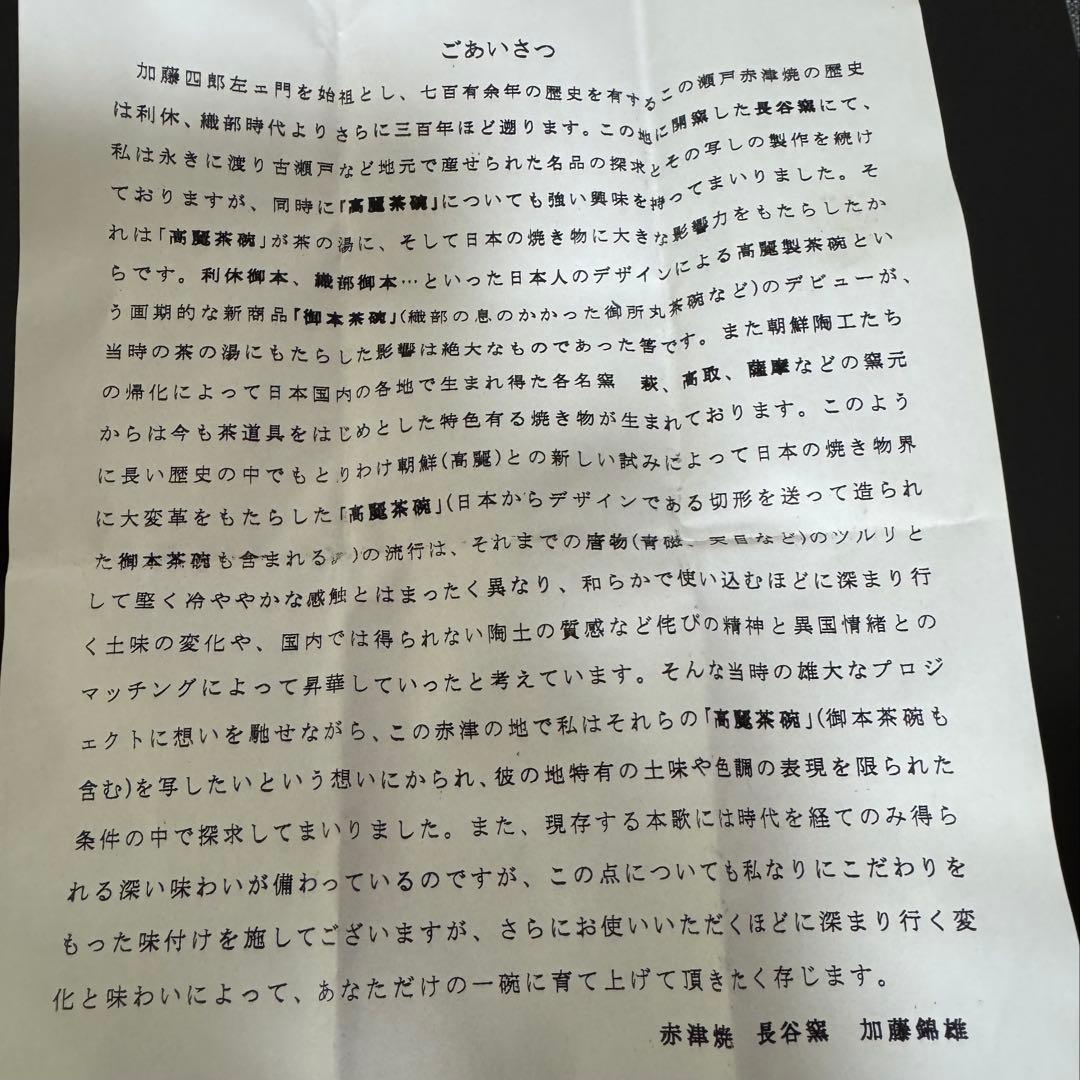 ごあいさつ
加藤四郎左ェ門を始祖とし、七百有余年の歴史を有するこの瀬戸赤津焼の歴史
は利休、織部時代よりさらに三百年ほど遡ります。この地に開窯した長谷窯にて、
私は永きに渡り古瀬戸など地元で産せられた名品の探求とその写しの製作を続け
ておりますが、同時に「高麗茶碗」についても強い興味を持ってまいりました。そ
れは「高麗茶碗」が茶の湯に、そして日本の焼き物に大きな影響力をもたらしたか
らです。利休御本、織部御本…といった日本人のデザインによる高麗製茶碗とい
う画期的な新商品「御本茶碗」(織部の息のかかった御所丸茶碗など)のデビューが、
当時の茶の湯にもたらした影響は絶大なものであった筈です。また朝鮮陶工たち
の帰化によって日本国内の各地で生まれ得た各名窯　萩、高取、薩摩などの窯元
からは今も茶道具をはじめとした特色有る焼き物が生まれております。このよう
に長い歴史の中でもとりわけ朝鮮(高麗)との新しい試みによって日本の焼き物界
に大変革をもたらした「高麗茶碗」(日本からデザインである切形を送って造られ
た御本茶碗も含まれる。)の流行は、それまでの唐物(青磁、天目など)のツルリと
して堅く冷ややかな感触とはまったく異なり、和らかで使い込むほどに深まり行
く土味の変化や、国内では得られない陶土の質感など侘びの精神と異国情緒との
マッチングによって昇華していったと考えています。そんな当時の雄大なプロジ
ェクトに想いを馳せながら、この赤津の地で私はそれらの「高麗茶碗」(御本茶碗も
含む)を写したいという想いにかられ、彼の地特有の土味や色調の表現を限られた
条件の中で探求してまいりました。また、現存する本歌には時代を経てのみ得ら
れる深い味わいが備わっているのですが、この点についても私なりにこだわりを
もった味付けを施してございますが、さらにお使いいただくほどに深まり行く変
化と味わいによって、あなただけの一碗に育て上げて頂きたく存じます。
赤津焼　長谷窯　加藤錦雄